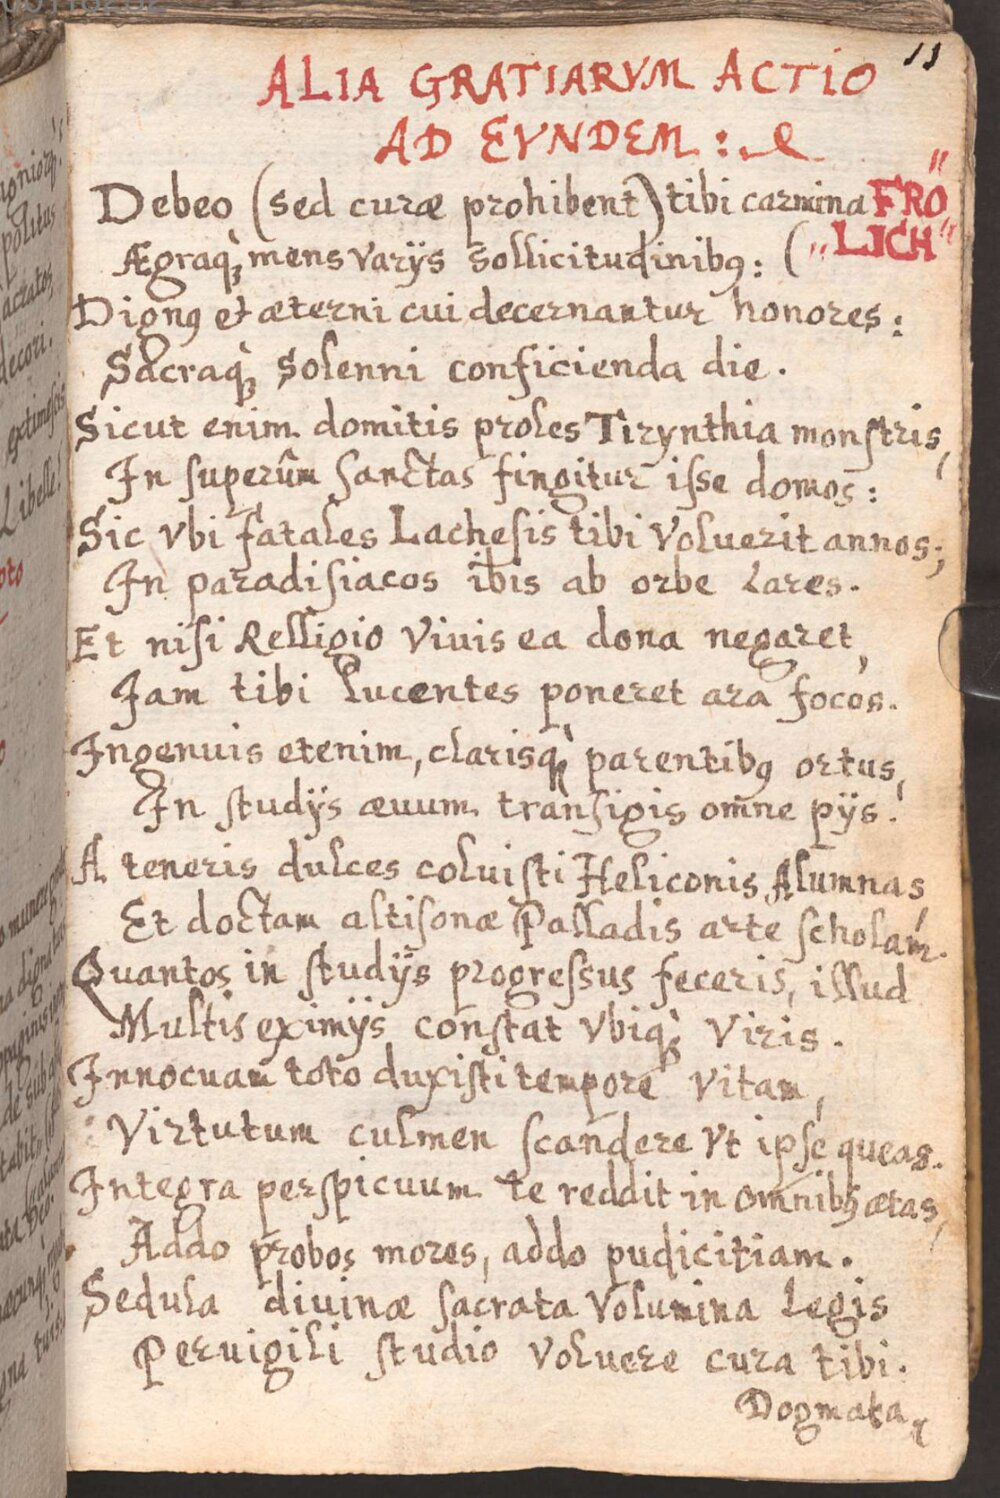 11
ALIA GRATIARVM ACTIO
AD EVNDEM :
Debeo (sed curæ prohibent) tibi carmina FRO
Ægraq; mens varijs sollicitudinibꝰ: ( LICH
Dignꝰ et æterni cui decernantur honores:
Sacraq; solenni conficienda die.
Sicut enim domitis proles Tirynthia monſtris,
In ſuperûm ſanctas fingitur iſse domos:
Sic vbi fatales Lacheſis tibi voluerit annos;
In paradiſiacos ibis ab orbe Lares.
Et niſi Relligio vivis ea dona negaret,
Jam tibi lucentes poneret ara focos.
Ingenuis etenim, clarisq; parentibꝰ ortus,
In ſtudijs æuum tranſigis omne pijs.
A teneris dulces coluiſti Heliconis Alumnas,
Et doctam altiſonæ Palladis arte ſcholam.
Quantos in ſtudijs progreſsus feceris, illud
Multis eximijs conſtat vbiq; viris.
Innocuam toto duxiſti tempore vitam,
Virtutum culmen ſcandere vt ipſe queas.
Integra perſpicuum te reddit in omnibꝰ ætas,
Addo probos mores, addo pudicitiam.
Sedula diuinæ ſacrata volumina Legis
Peruigili ſtudio voluere cura tibi.
Dogmata